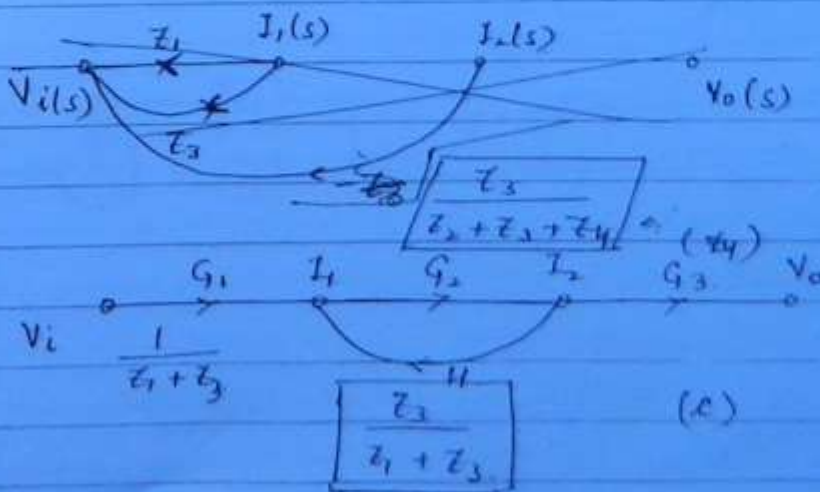 Z1 I1(s) I2(s)
Vi(s) Vo(s)
Z3
Z3
Z2 + Z3 + Z4
(Z4)
G1 I1 G2 I2 G3 Vo
Vi
1
Z1 + Z3
H
Z3
Z1 + Z3
(c)